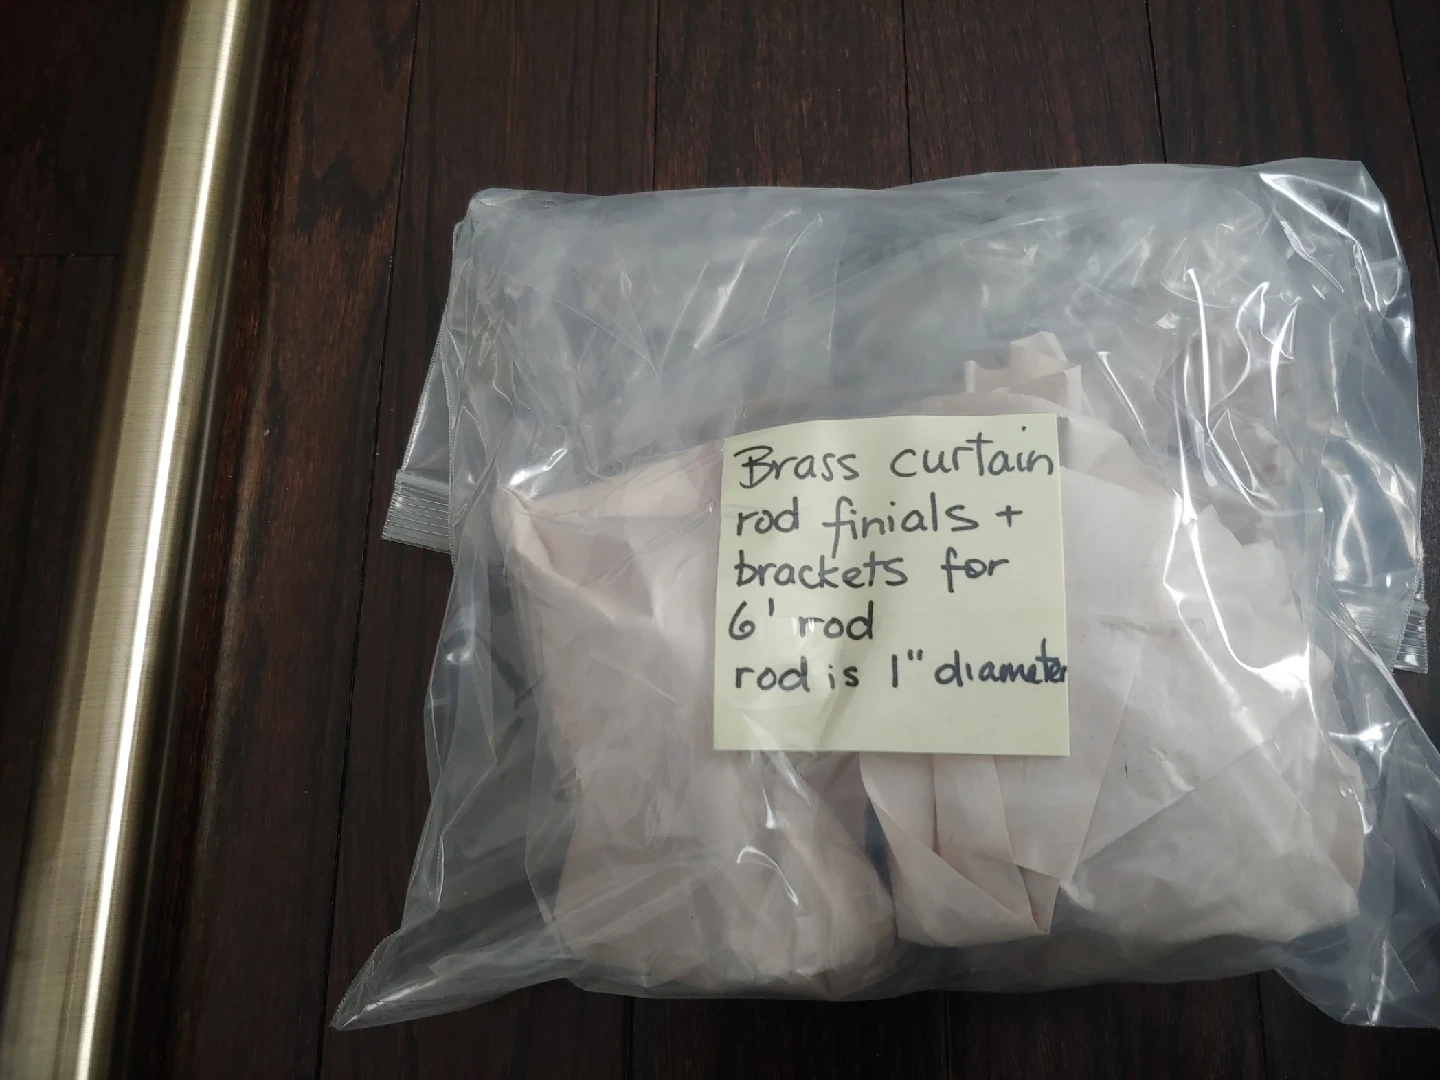 Brass curtain
rod finials +
brackets for
6' rod
rod is 1" diameter